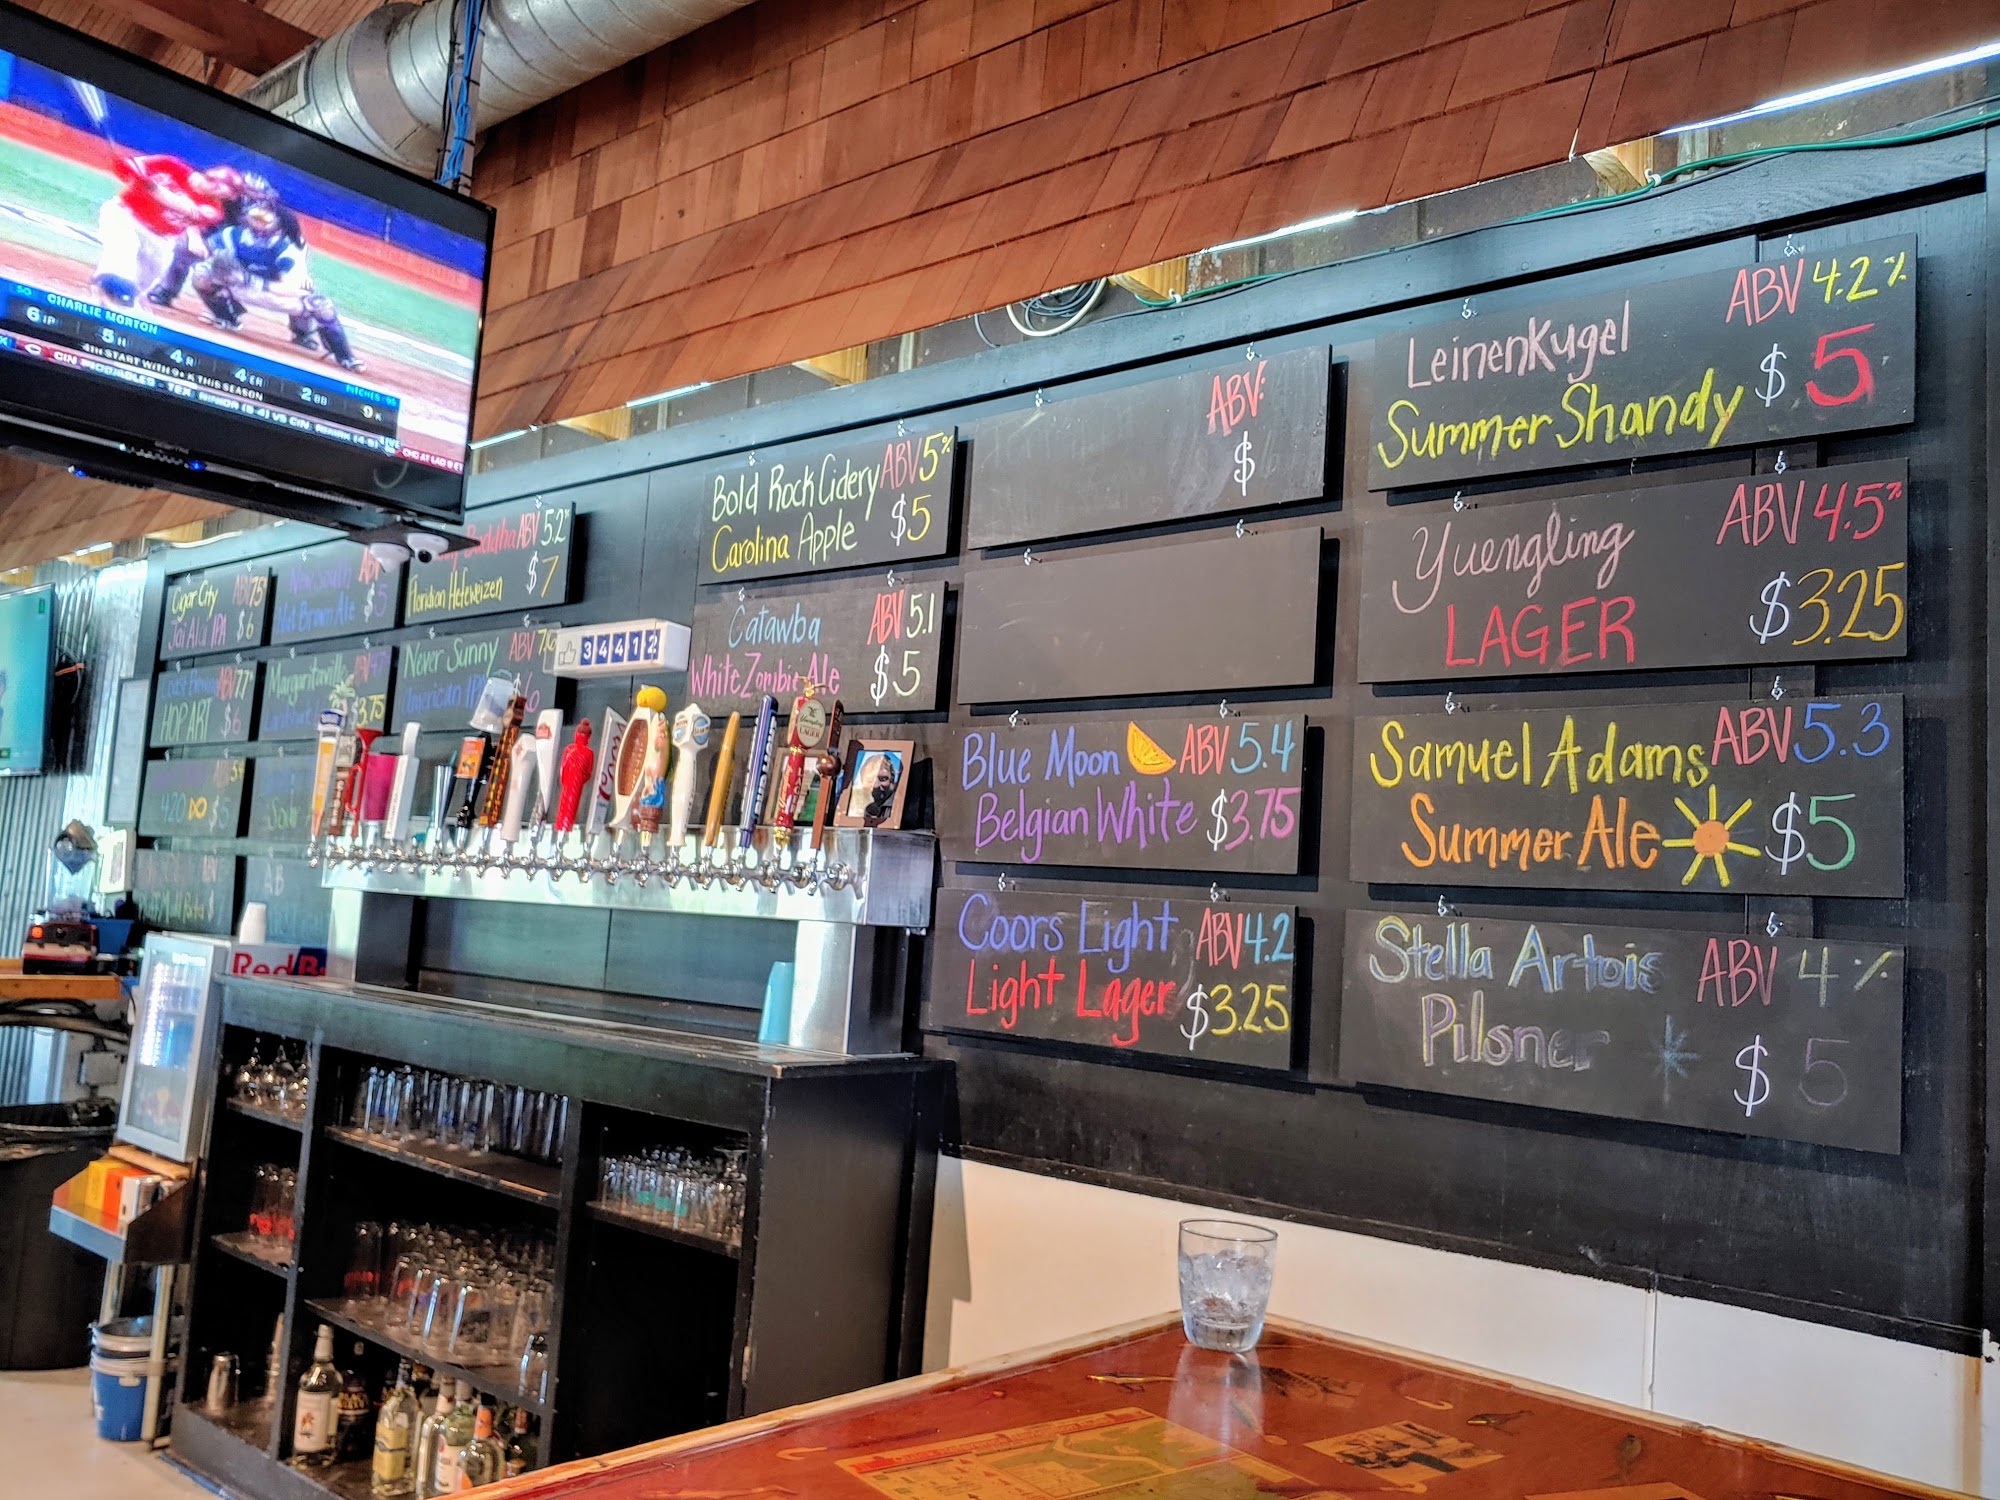 CHARLIE MORTON
6 IP 5 H 4 R 4 ER 2 BB 9 K
PITCHES: 95
4TH START WITH 9+ K THIS SEASON
CIN
Cigar City ABV 7.5
Jai Alai IPA $6
HOP ART $6
420 $5
Nut Brown Ale $5
Margaritaville
$3.75
Buddha ABV 5.2%
Floridian Hefeweizen $7
Never Sunny ABV 7.6
American IPA $6
34412
Bold Rock Cidery ABV 5%
Carolina Apple $5
Catawba ABV 5.1
White Zombie Ale $5
LAGER
ABV:
$
Blue Moon ABV 5.4
Belgian White $3.75
Coors Light ABV 4.2
Light Lager $3.25
Leinenkugel ABV 4.2%
Summer Shandy $5
Yuengling ABV 4.5%
LAGER $3.25
Samuel Adams ABV 5.3
Summer Ale $5
Stella Artois ABV 4%
Pilsner $5
RedBu